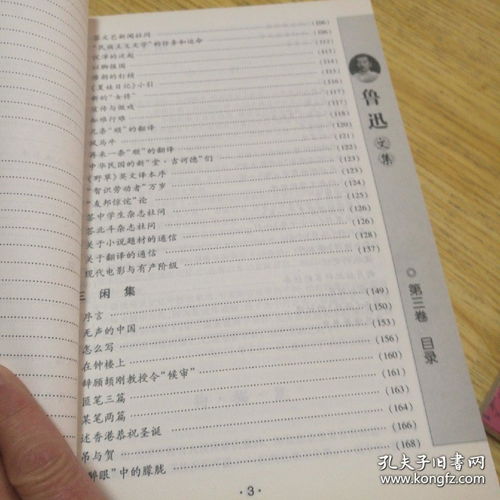 答文艺新闻社问 (106)
“民族主义文学”的任务和运命
沉滓的泛起 (112)
以脚报国 (114)
唐朝的钉梢 (115)
《夏娃日记》小引 (116)
新的“女将” (117)
宣传与做戏 (118)
知难行难
几条“顺”的翻译 (120)
风马牛 (121)
再来一条“顺”的翻译 (122)
中华民国的新“堂·吉诃德”们
《野草》英文译本序
“智识劳动者”万岁 (124)
“友邦惊诧”论 (125)
答中学生杂志社问 (126)
答北斗杂志社问 (126)
关于小说题材的通信 (128)
关于翻译的通信 (131)
现代电影与有产阶级 (137)
三闲集
序言 (149)
无声的中国 (150)
怎么写 (153)
在钟楼上 (156)
辞顾颉刚教授令“候审” (160)
匪笔三篇 (161)
某笔两篇 (163)
述香港恭祝圣诞 (164)
吊与贺 (166)
“醉眼”中的朦胧 (168)
·3·
鲁迅文集
◎第三卷 目录
孔夫子旧书网
www.kongfz.com